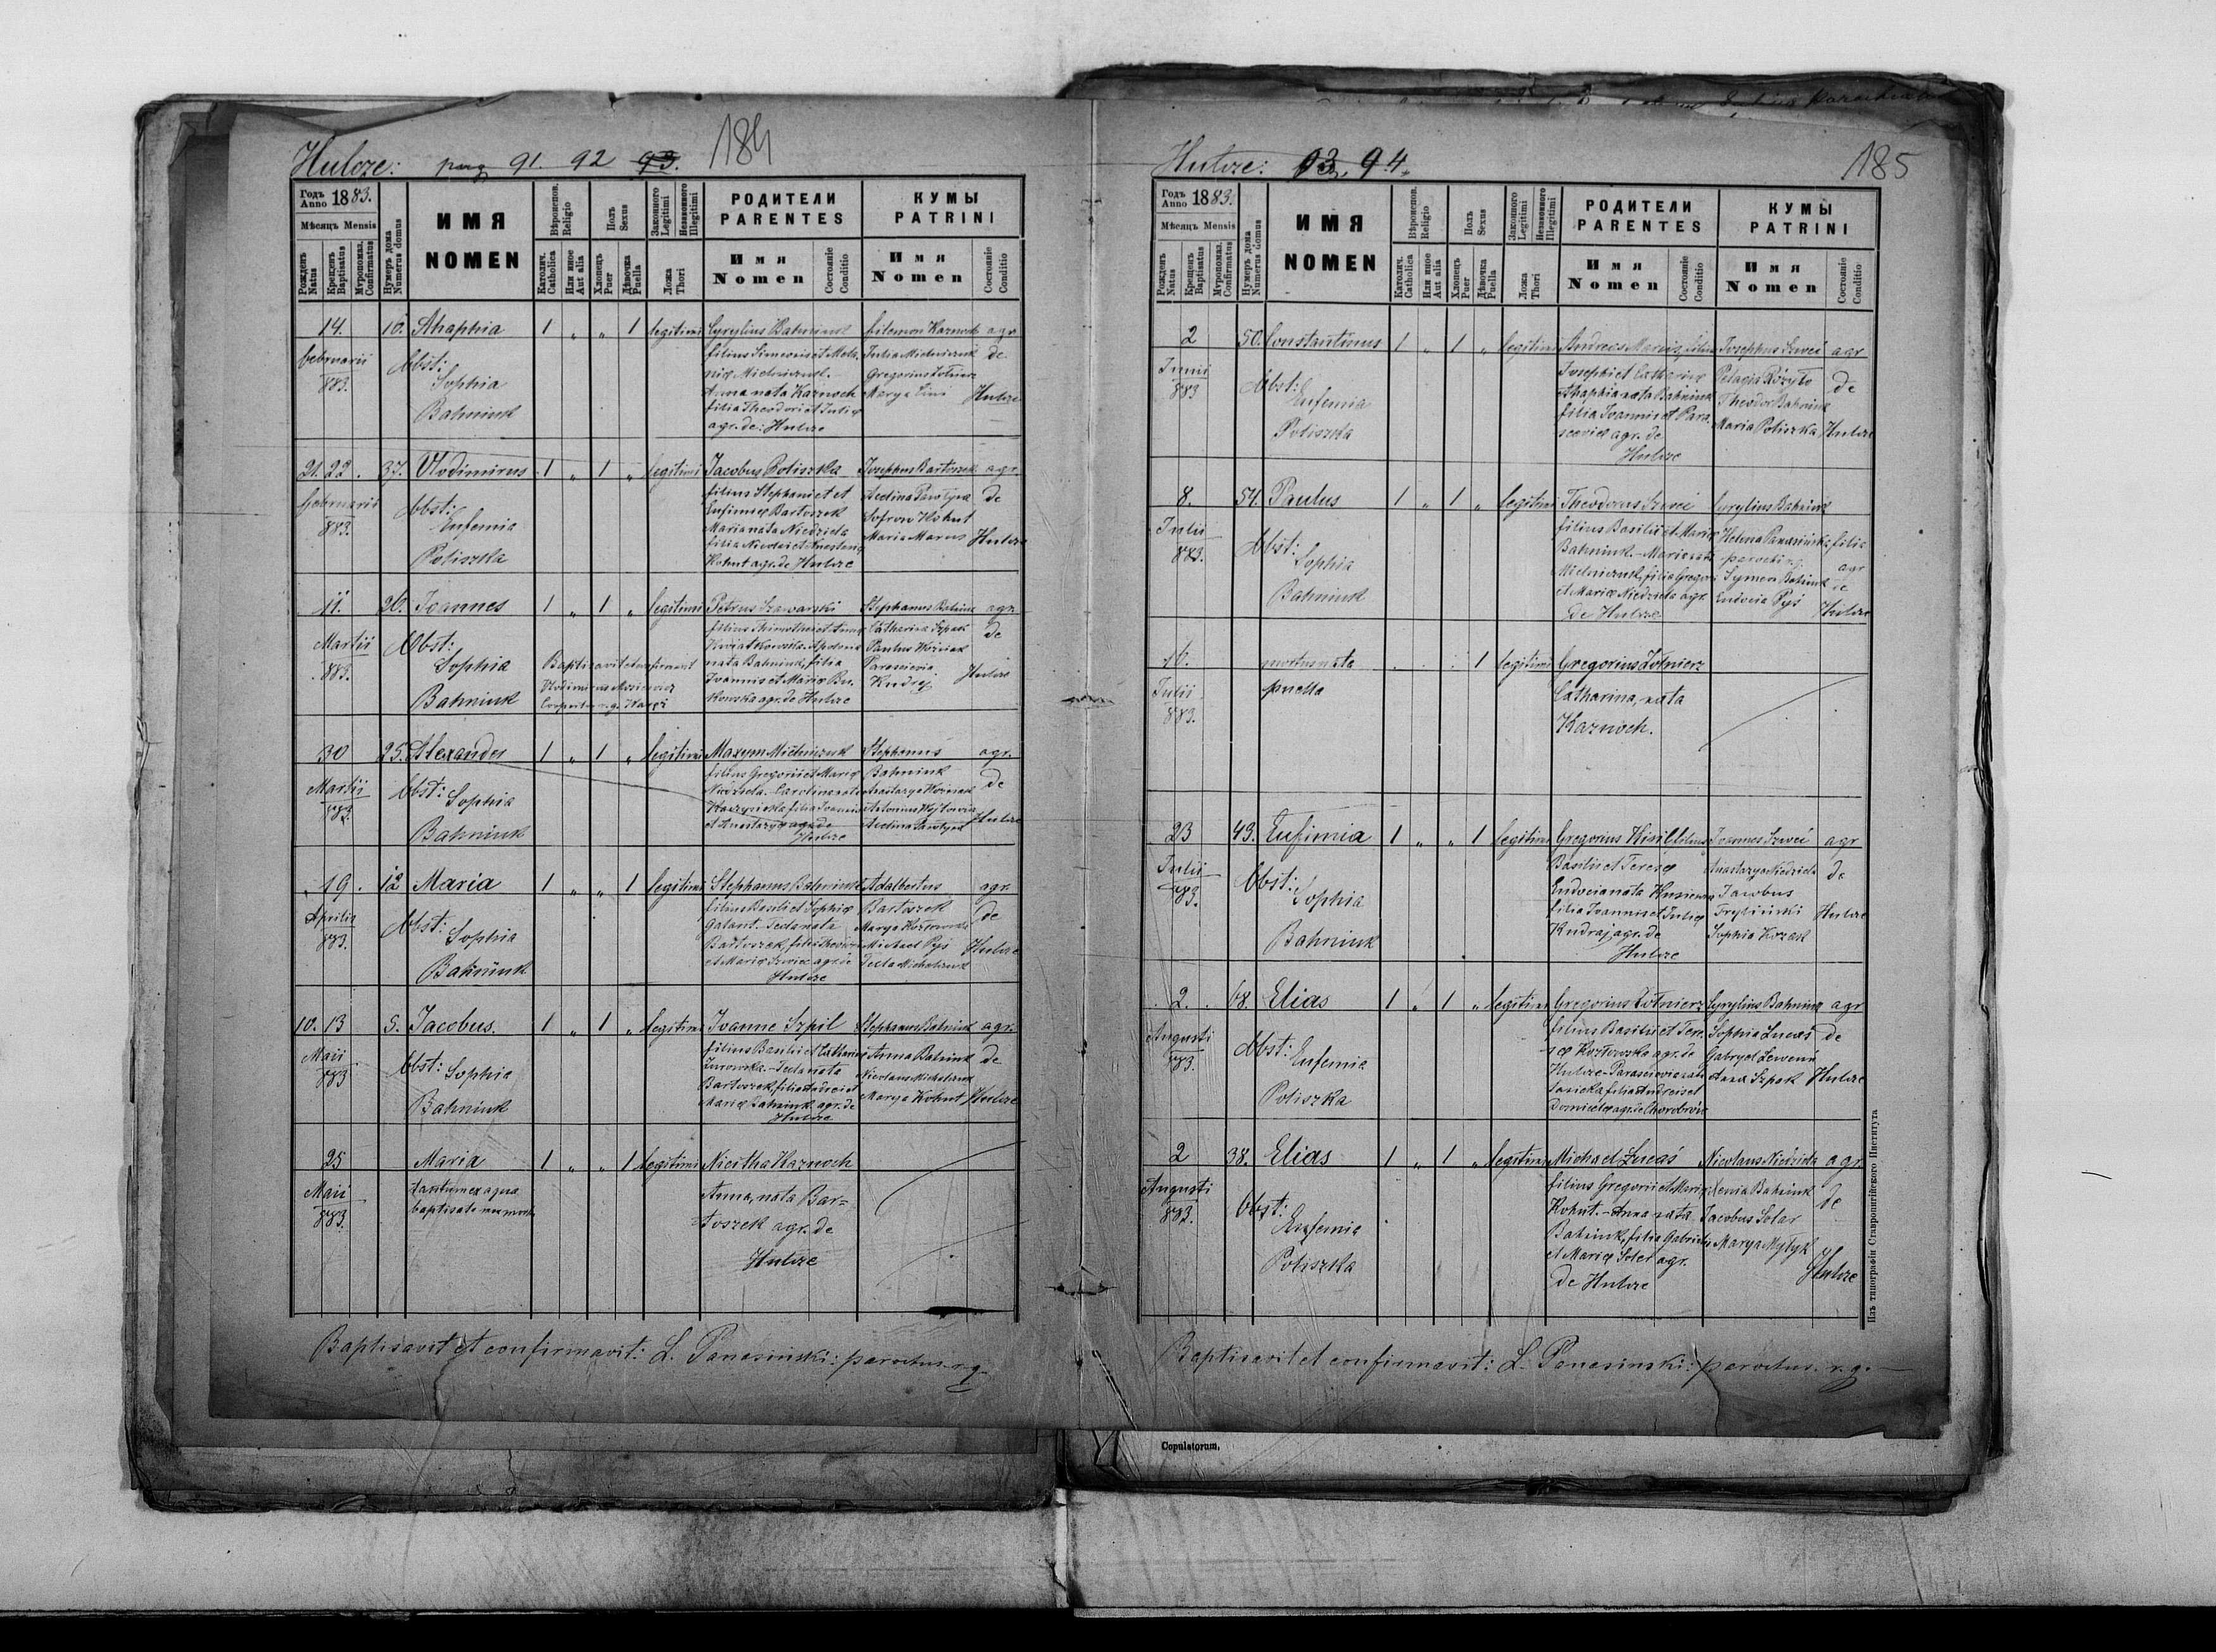 Hulcze: pag 91. 92 93. 184
Годъ Anno 1883.
Мѣсяцъ Mensis
Рожденъ Natus
Крещенъ Baptisatus
Мѵропомаз. Confirmatus
Нумеръ дома Numerus domus
ИМЯ
NOMEN
Вѣроиспов. Religio
Католич. Catholica
Или иное Aut alia
Полъ Sexus
Хлопецъ Puer
Дѣвочка Puella
Законного Legitimi
Незаконного Illegitimi
Ложа Thori
РОДИТЕЛИ
PARENTES
Имя
Nomen
Состояніе Conditio
КУМЫ
PATRINI
Имя
Nomen
Состояніе Conditio
14. 16. Ahaphia 1 „ „ 1 legitimi Cyrylius Bahniuk filemon Karnoch agr.
februarii 883. Obst: Sophia Bahniuk
filius Simeonis et Mela
niæ Mielniczuk.-
Anna nata Karnoch
filia Theodori et Juliæ
agr. de: Hulcze
Julia Mielniczuk de
Gregorius Żołnierz
Marya Hulcze
21. 22. 37. Vlodimirus 1 „ 1 „ legitimi Jacobus Poliszka Josephus Bartoszek agr.
februarii 883. Obst: Eufemia Poliszka
filius Stephani et
Eufimiæ Bartoszek
Maria nata Niedziela
filia Nicolai et Anastasiæ
Kohut agr. de Hulcze
de
Sofron Kohut
Maria Marus Hulcze
11. 26. Joannes 1 „ 1 „ legitimi Petrus Szawarski Stephanus Bahniuk agr.
Martii 883. Obst: Sophia Bahniuk
Baptisavit et confirmavit
Vlodimirus
Cooperator r.g.
filius Thimothei et Annæ
nata Bahniuk, filia
Joannis et Mariæ Bu-
kowska agr. de Hulcze
Catharina Szpak de
Paulus Woźniak
Parascievia
Kudrej Hulcze
30 25. Alexander 1 „ 1 „ legitimi Maxym Mielniczuk Stephanus agr.
Martii 883. Obst: Sophia Bahniuk
filius Gregorii et Mariæ
Niedziela.- Carolina nata
filia Joannis
et Anastazyæ agr. de
Hulcze
Bahniuk de
Anastazya Woźniak
Antonius Wójtowicz
Hulcze
19. 12 Maria 1 „ „ 1 legitimi Stephanus Bahniuk Adalbertus agr.
Aprilis 883. Obst: Sophia Bahniuk
filius Basilii et Sophiæ
Galant.- Tecla nata
Bartoszek, filia Theodori
et Mariæ Szwiec agr. de
Hulcze
Bartoszek de
Marya
Michael Pyś Hulcze
Tecla Michalczuk
10. 13 5. Jacobus. 1 „ 1 „ legitimi Ivanne Szpil Stephanus Bahniuk agr.
Maii 883 Obst: Sophia Bahniuk
filius Basilii et Catharinæ
Żurowska.- Tecla nata
Bartoszek, filia Andrei et
Mariæ Bahniuk agr. de
Hulcze
Anna Bahniuk de
Nicolaus Michalczuk
Marya Kohut Hulcze
25 Maria 1 „ „ 1 legitimi Nicitha Karnoch
Maii 883. tantum ex aqua
baptisata
Anna, nata Bar=
=toszek agr. de
Hulcze
Baptisavit et confirmavit: L. Panasinski: parochus. r.g.
Hulcze: 93, 94. 185
Годъ Anno 1883.
Мѣсяцъ Mensis
Рожденъ Natus
Крещенъ Baptisatus
Мѵропомаз. Confirmatus
Нумеръ дома Numerus domus
ИМЯ
NOMEN
Вѣроиспов. Religio
Католич. Catholica
Или иное Aut alia
Полъ Sexus
Хлопецъ Puer
Дѣвочка Puella
Законного Legitimi
Незаконного Illegitimi
Ложа Thori
РОДИТЕЛИ
PARENTES
Имя
Nomen
Состояніе Conditio
КУМЫ
PATRINI
Имя
Nomen
Состояніе Conditio
2 50. Constantinus 1 „ 1 „ legitimi Andreas Marus, filius Josephus Szwec agr
Junii 883 Obst: Eufemia Poliszka
Josephi et Catharinæ
Ahaphia nata Bahniuk
filia Joannis et Para-
sceviæ agr. de
Hulcze
Pelagia Rożyło de
Theodor Bahniuk
Maria Poliszka Hulcze
8. 54. Paulus 1 „ 1 „ legitimi Theodorus Szwec Cyrylius Bahniuk
Julii 883. Obst: Sophia Bahniuk
filius Basilii et Mariæ
Bahniuk.- Maria nata
Mielniczuk, filia Gregorii
et Mariæ Niedziela agr.
de Hulcze
Helena Panasińska filia
parochi
Symeon Bahniuk agr
Eudocia Pyś de
Hulcze
16. mortua nata 1 legitimi Gregorius Żołnierz
Julii 883. puella
Catharina, nata
Karnoch.
23 43. Eufimia 1 „ „ 1 legitimi Gregorius Kisil filius Joannes Szwec agr
Julii 883. Obst: Sophia Bahniuk
Basilii et Teresæ
Eudocia nata
filia Joannis et Juliæ
Kudraj agr. de
Hulcze
Anastazya Niedziela de
Jacobus
Hulcze
Sophia Kozak
2. 68. Elias 1 „ 1 „ legitimi Gregorius Żołnierz Cyrylius Bahniuk agr
Augusti 883. Obst: Eufemia Poliszka
filius Basilii et Tere-
siæ Kozłowska agr. de
Hulcze - Parascievia nata
filia Andrei et
agr. de Chorobrów
Sophia Lucaś de
Gabryel
Anna Szpak Hulcze
2 38. Elias 1 „ 1 „ legitimi Michael Lucaś Nicolaus Niedziela agr.
Augusti 883. Obst: Eufemia Poliszka
filius Gregorii et Mariæ
Kohut.- Anna nata
Bahniuk, filia Gabrielis
et Mariæ Soler agr.
de Hulcze
Xenia Bahniuk de
Jacobus Solar
Marya Mylyk
Hulcze
Baptisavit et confirmavit: L. Panasinski: parochus. r.g.
Изъ типографіи Ставропигійского Института
Copulatorum.